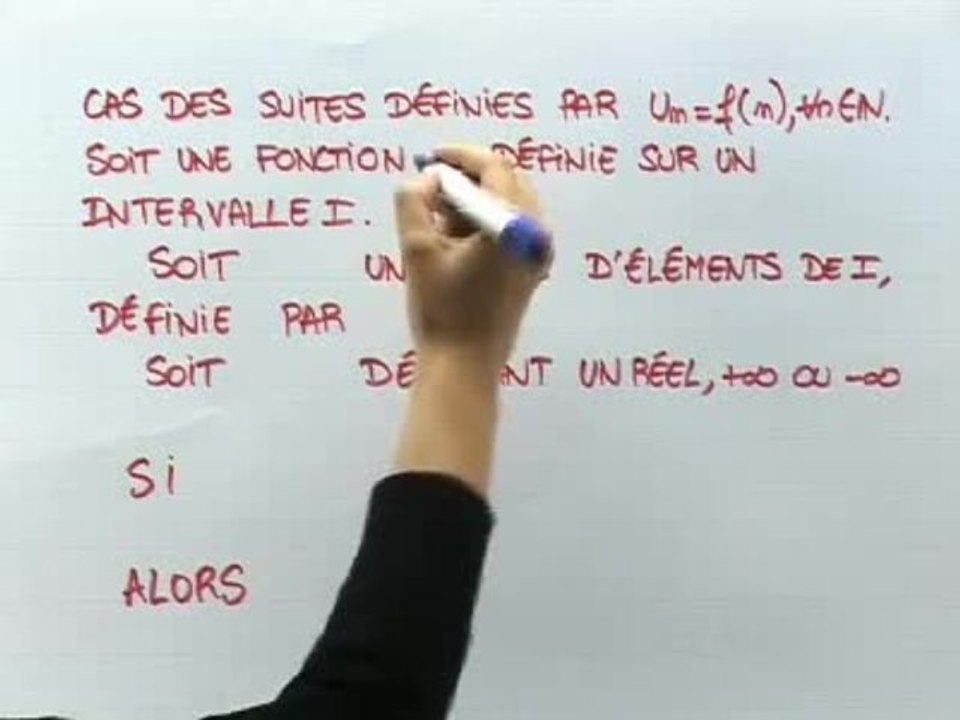 CAS DES SUITES DÉFINIES PAR Un=f(n),∀n∈IN.
SOIT UNE FONCTION DÉFINIE SUR UN
INTERVALLE I.
SOIT UN D'ÉLÉMENTS DE I,
DÉFINIE PAR
SOIT UN RÉEL, +∞ OU -∞
SI
ALORS